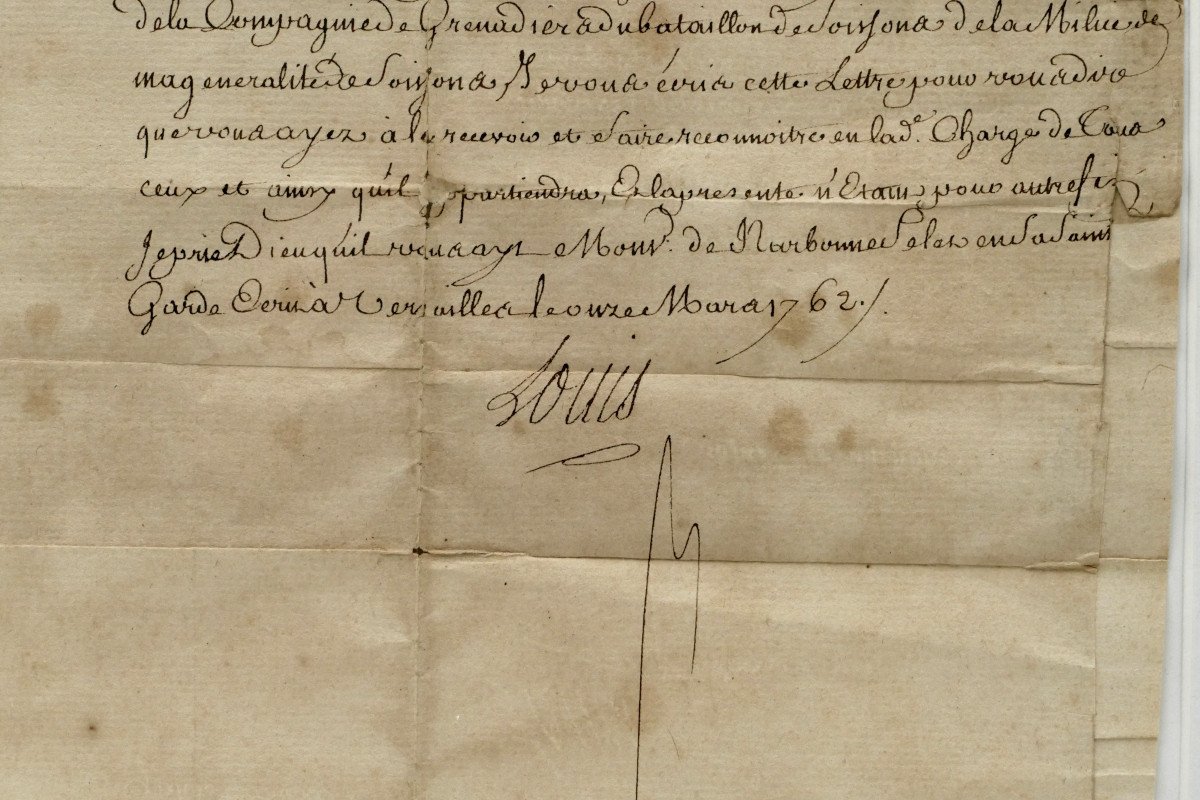 de la Compagnie de Grenadiers du bataillon de Soissons de la Milice de
ma generalité de Soissons Je vous écris cette Lettre pour vous dire
que vous ayez à le recevoir et faire reconnoitre en lad.e Charge de Tous
ceux et ainsy qu'il partiendra, Et la presente n'Etant pour autre fin
Je prie Dieu qu'il vous ayt Monsr. de Narbonne Pelet en sa Saint
Garde Ecrit à Versailles le onze Mars 1762./.
Louis